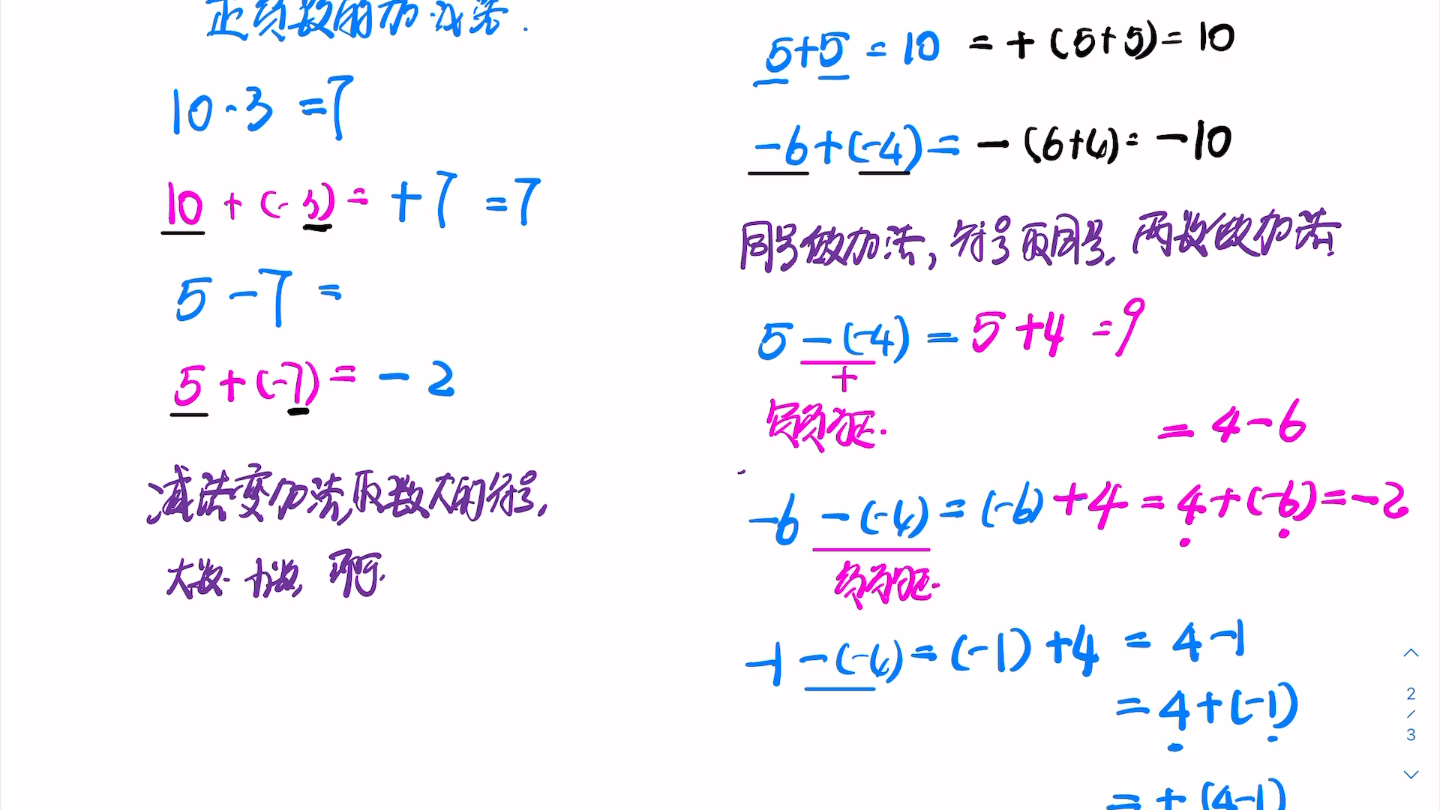 正负数的加减法.
10-3=7
10+(-3)=+7=7
5-7=
5+(-7)=-2
减法变加法,取数大的符号,
大数-小数,即可.
5+5=10=+(5+5)=10
-6+(-4)=-(6+4)=-10
同号做加法,符号取同号,两数做加法
5-(-4)=5+4=9
+
负负为正.
=4-6
-6-(-4)=(-6)+4=4+(-6)=-2
负负为正.
-1-(-4)=(-1)+4=4-1
=4+(-1)
=+(4-1)
2/3